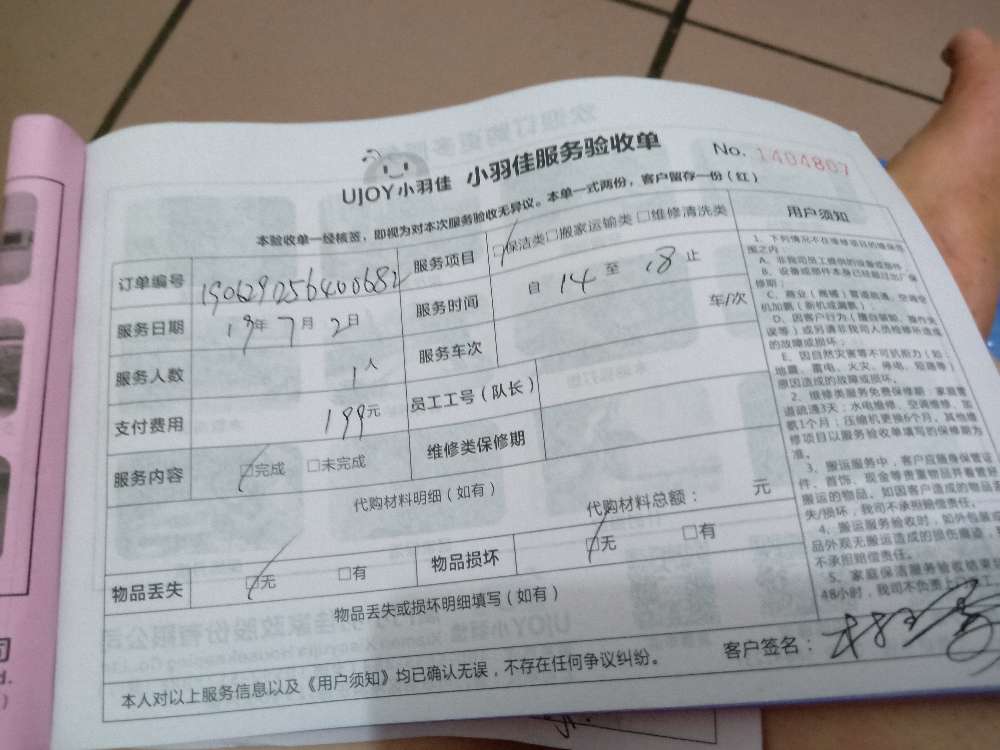 UJOY小羽佳 小羽佳服务验收单
No. 1404807
本验收单一经核签，即视为对本次服务验收无异议。本单一式两份，客户留存一份（红）
订单编号 190629056400682 服务项目 □保洁类□搬家运输类 □维修清洗类
服务日期 19年7月2日 服务时间 自 14 至 18 止
服务人数 1人 服务车次 车/次
支付费用 199元 员工工号（队长）
服务内容 □完成 □未完成 维修类保修期
代购材料明细（如有）
代购材料总额： 元
物品丢失 □无 □有 物品损坏 □无 □有
物品丢失或损坏明细填写（如有）
客户签名：
本人对以上服务信息以及《用户须知》均已确认无误，不存在任何争议纠纷。
用户须知
1、下列情况不在维修项目的维保范
围之内：
A、非我司员工提供的设备或部件
B、设备或部件本身已经超过出厂保
修期；
C、商业（商铺）管道疏通，空调空
机加氨（新机或漏氨）
D、因客户行为（擅自
误等）或另请非我司人员检修所造成
的故障或损坏；
E、因自然灾害等不可抗能力（如：
地震、雷电、火灾、停电、短路等）
原因造成的故障或损坏。
2、维修类服务免费保修期：家庭管
道疏通3天；水电维修、空调维修、加
氨1个月；压缩机更换6个月。其他维
修项目以服务验收单填写的保修期为
准。
3、搬运服务中，客户应随身保管证
件、首饰、现金等贵重物品并看管好
搬运的物品。如因客户造成的物品丢
失/损坏，我司不承担赔偿责任。
4、搬运服务验收时，如外包装完
品外观无搬运造成的损伤痕迹，
不承担赔偿责任。
5、家庭保洁服务验收结束
48小时，我司不负责